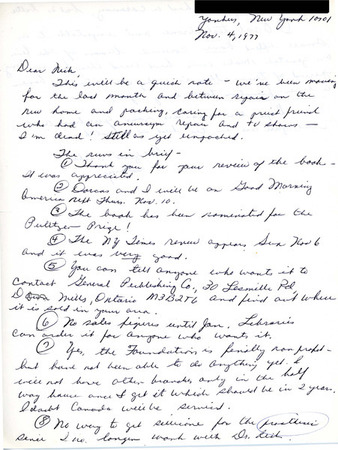 Yonkers, New York 10701
Nov. 4, 1977
Dear Rick,
This will be a quick note - we've been moving
for the last month and between repairs on the
new home and packing, caring for a priest friend
who had an aneurysm repair and tv shows -
I'm dead! Still as yet unpacked.
The news in brief -
① Thank you for your review of the book -
It was appreciated.
② and I will be on Good Morning
America next Thurs. Nov. 10.
③ The book has been nominated for the
Pulitzer Prize!
④ The NY Times review appears Sun Nov 6
and it was very good.
⑤ You can tell anyone who wants it to
contact General Publishing Co, 30 Lesmill Rd,
Don Mills, Ontario M3B2T6 and find out where
it is sold in your area.
⑥ No sales figures until Jan. Libraries
can order it for anyone who wants it.
⑦ Yes, the Foundation is finally non profit -
but have not been able to do anything yet. I
will not have other branches only in the half
way house once I get it which should be in 2 years.
I doubt Canada will be serviced.
⑧ No way to get silicone for the prosthesis
since I no longer work with Dr.